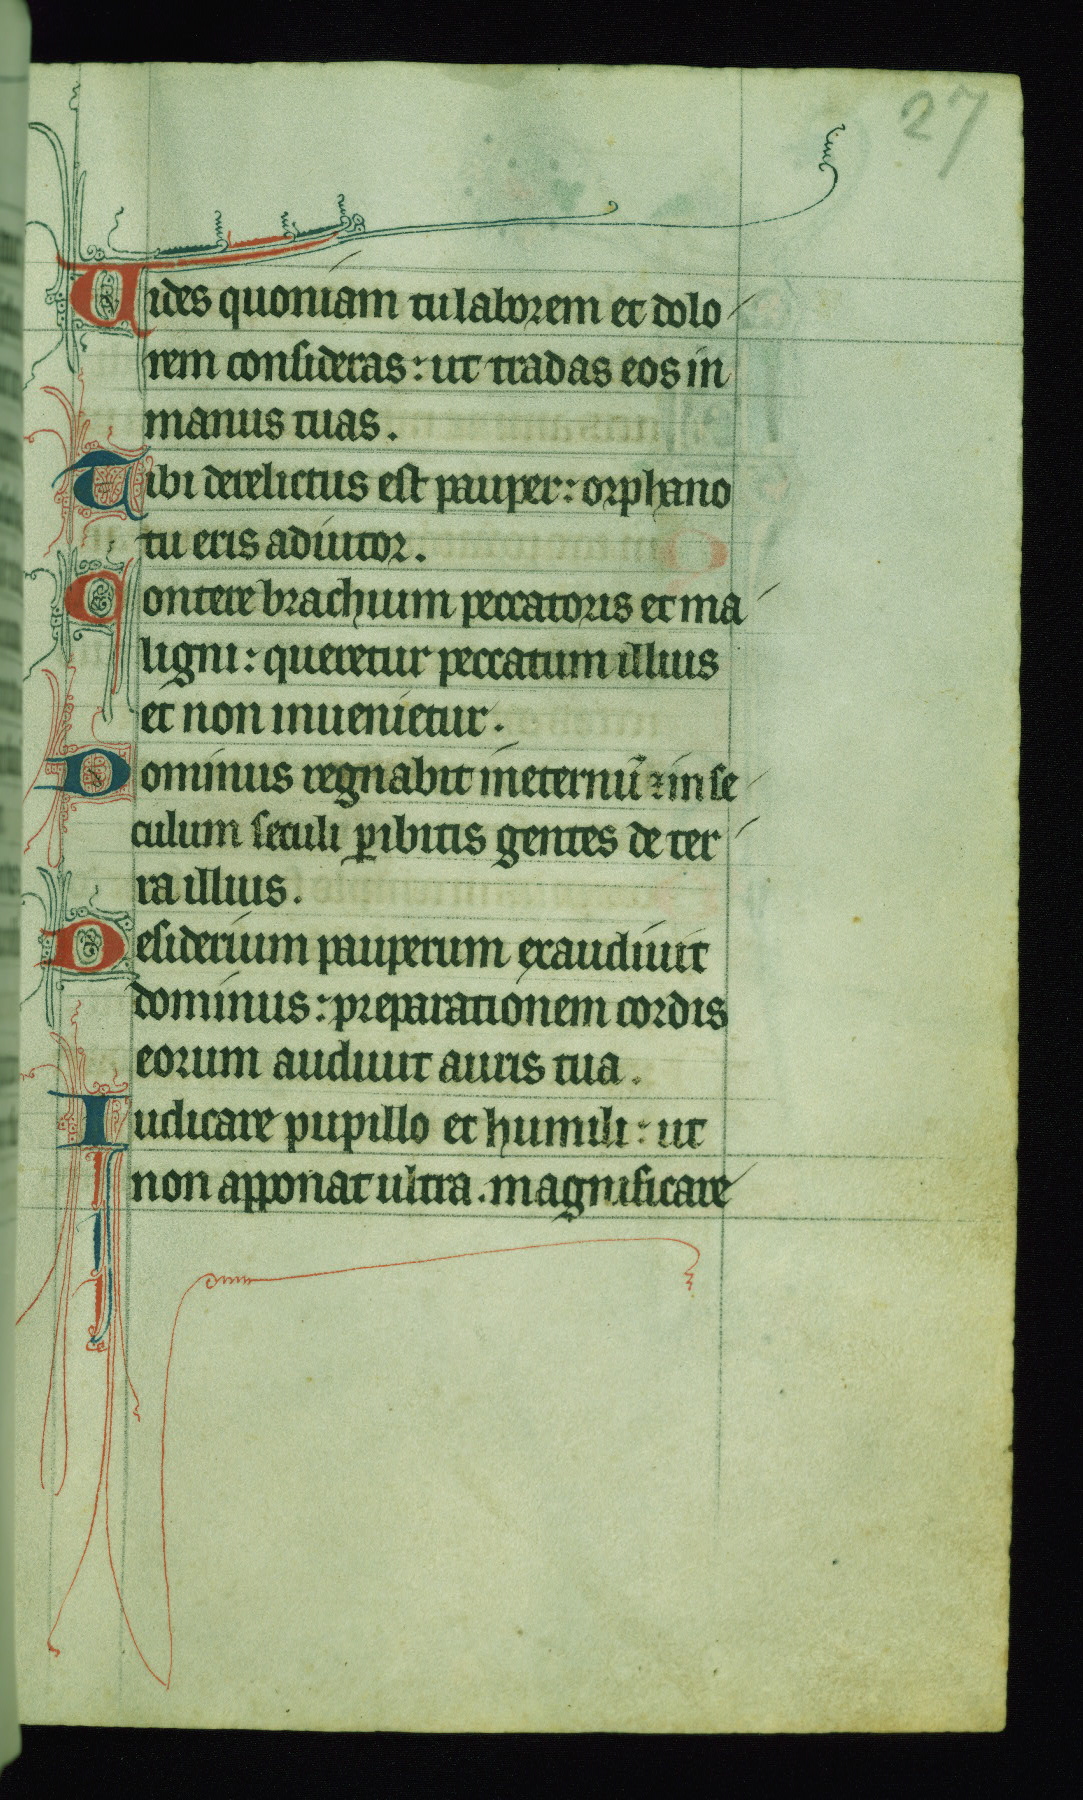 27
Uides quoniam tu laborem et dolo
rem consideras: ut tradas eos in
manus tuas.
Tibi derelictus est pauper: orphano
tu eris adiutor.
Contere brachium peccatoris et ma
ligni: queretur peccatum illius
et non inuenietur.
Dominus regnabit in eternū ⁊ in se
culum seculi ꝑibitis gentes de ter
ra illius.
Desiderium pauperum exaudiuit
dominus: preparationem cordis
eorum audiuit auris tua.
Iudicare pupillo et humili: ut
non apponat ultra. magnificare